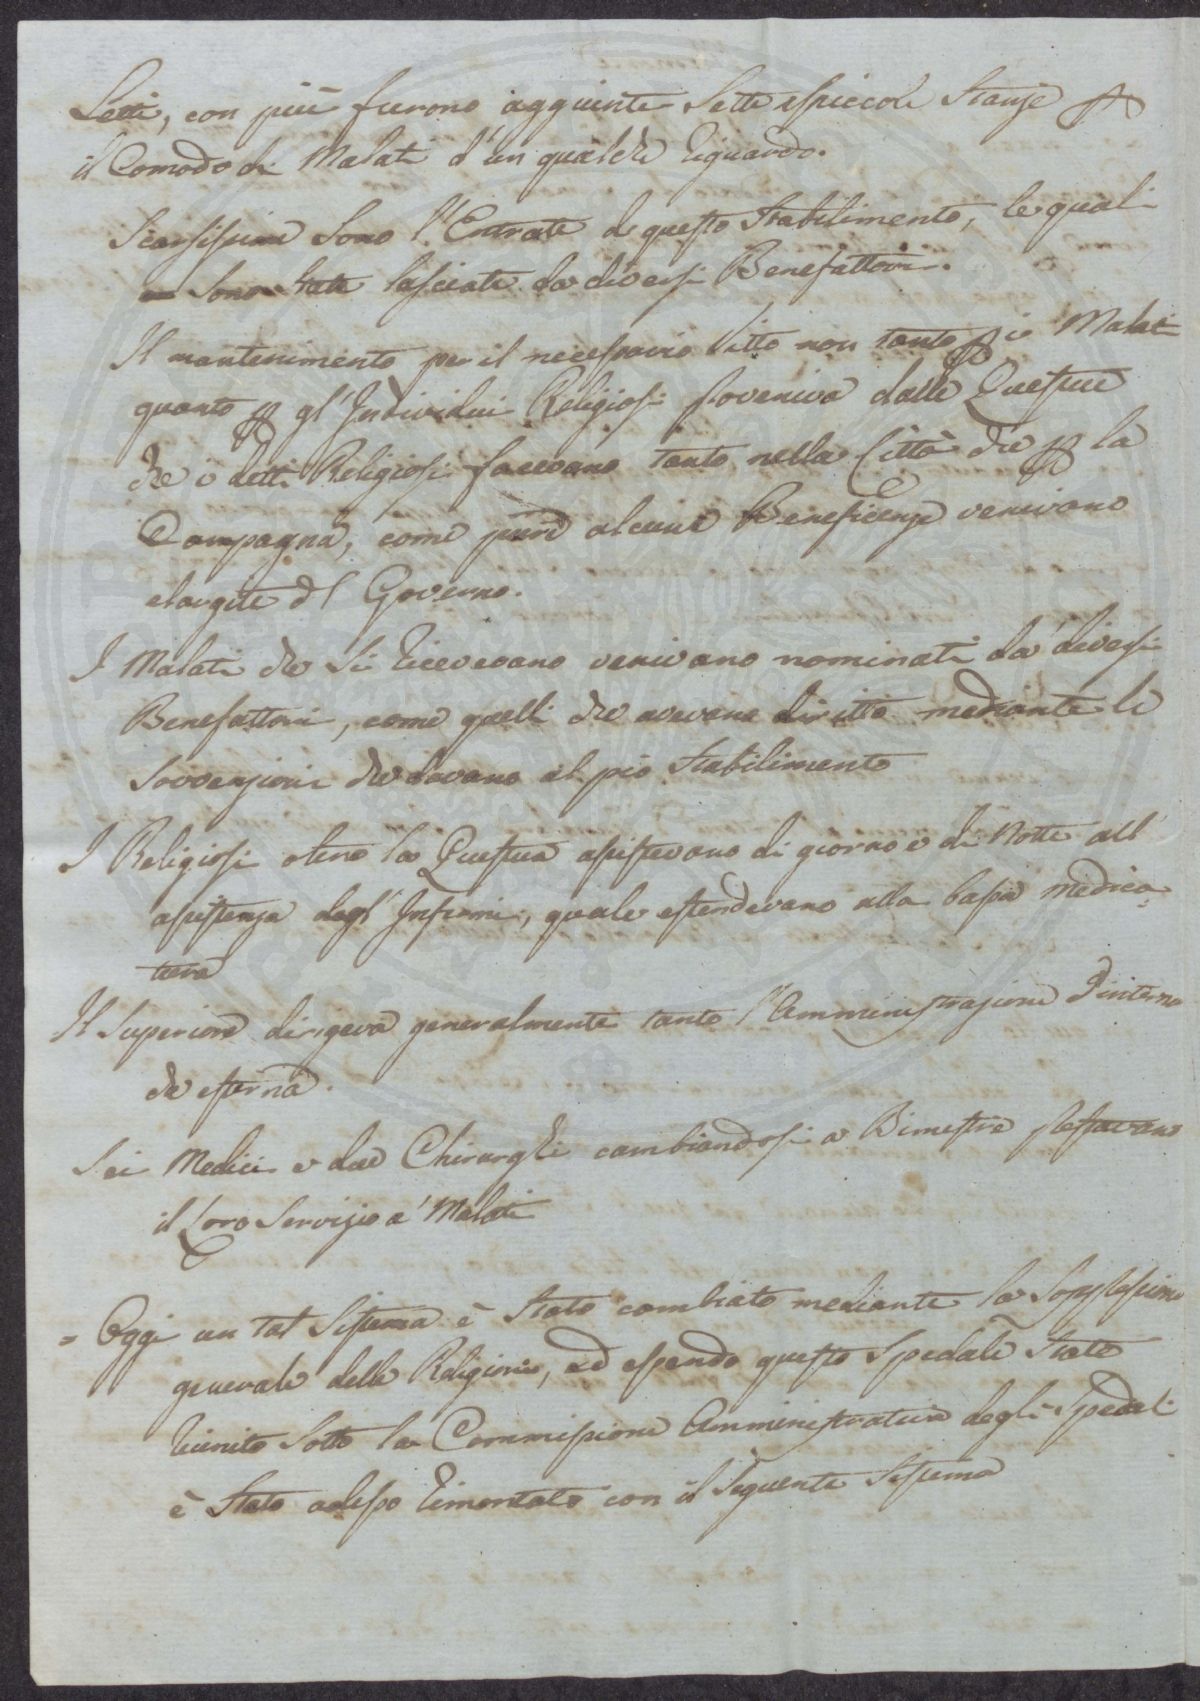 Letti, con più furono aggiunte Sette piccole Stanze per
il Comodo di Malati d'un qualche riguardo.
Scarsissime Sono l'Entrate di questo Stabilimento, le quali
Sono State lasciate da diversi Benefattori.
Il mantenimento per il necessario Vitto non tanto per i Malati
quanto per gl'Individui Religiosi proveniva dalle Questue
che i detti Religiosi facevano tanto nella Città che per la
Campagna, come pure alcune Beneficenze venivano
elargite dal Governo.
I Malati che Si ricevevano venivano nominati da' diversi
Benefattori, come quelli che avevano diritto mediante le
Sovvenzioni che davano al pio Stabilimento
I Religiosi oltre la Questua assistevano di giorno e di Notte all'
assistenza degl'Infermi, quale estendevano alla bassa medica
tura
Il Superiore dirigeva generalmente tanto l'Amministrazione d'interna
che esterna.
Sei Medici e due Chirurghi cambiandosi a Bimestre prestavano
il Loro Servizio a' Malati
= Oggi un tal Sistema è Stato cambiato mediante la Soppressione
generale delle Religioni, ed essendo questo Spedale Stato
riunito Sotto la Commissione Amministrativa degli Spedali
è Stato adesso rimontato con il Seguente Sistema